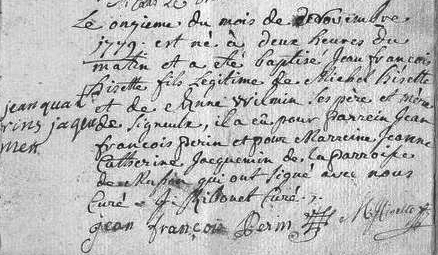 Le onzieme du mois de novembre
1779 est né à deux heures du
matin et a eté baptise Jean françois
hisette fils legitime de Michel hisette
et de Anne Wilmin ses père et mére
de signeule, il a eû pour Parrein Jean
francois Perin et pour Marreine Jeanne
Catherine Jacquemin de la parroisse
de qui ont signé avec nous
Curé Ribonet Curé
jean françois Perin M hisette
jean